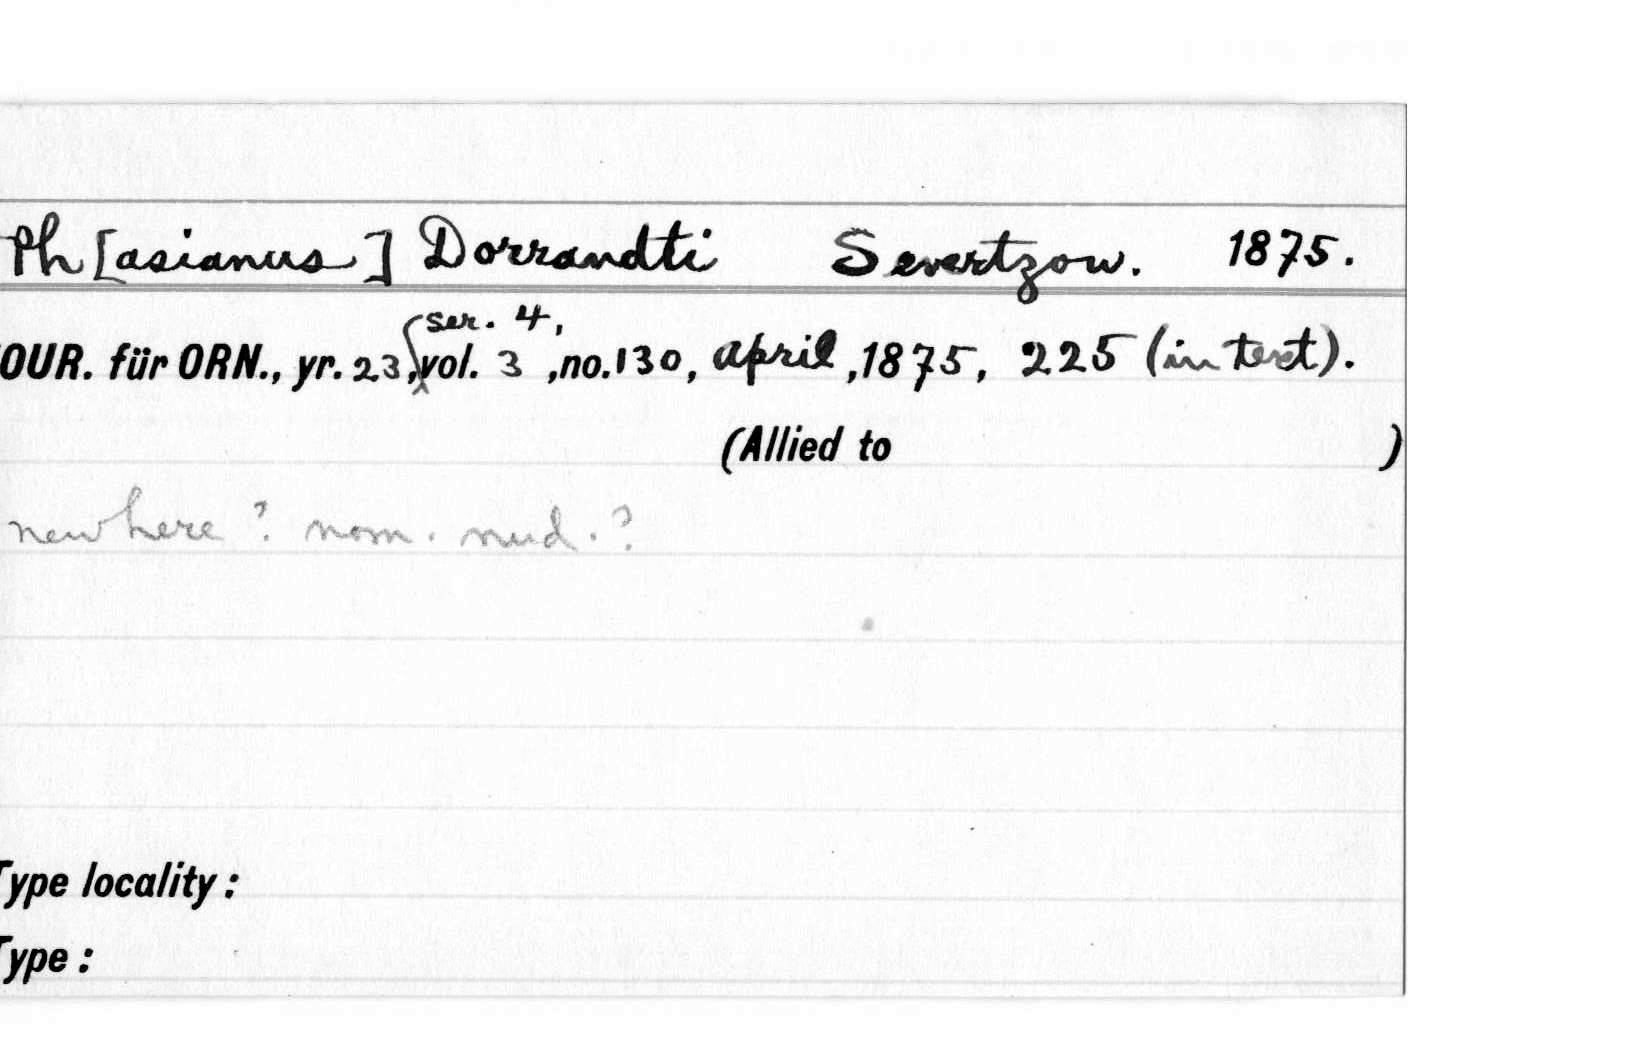 Ph[asianus] Dorrandti Severtzow. 1875.
ser. 4,
OUR. für ORN., yr. 23, vol. 3, no. 130, april, 1875, 225 (in text).
(Allied to )
new here? nom. nud.?
Type locality:
Type: